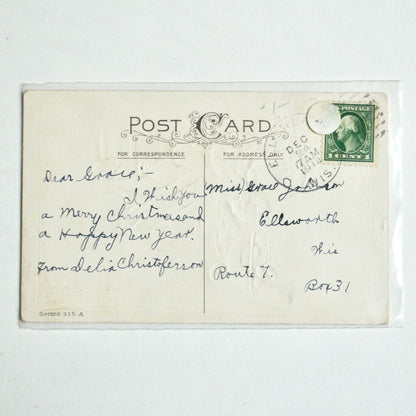 POST CARD
FOR CORRESPONDENCE
FOR ADDRESS ONLY
Dear Grace;-
I Wish you
a Merry Christmas and
a Happy New Year.
From Delia Christoferson
Miss Grace Johnson
Ellsworth
Wis
Route 7.
Box 31
DEC
7 AM
WIS.
POSTAGE
1 CENT 1
SERIES 315 A